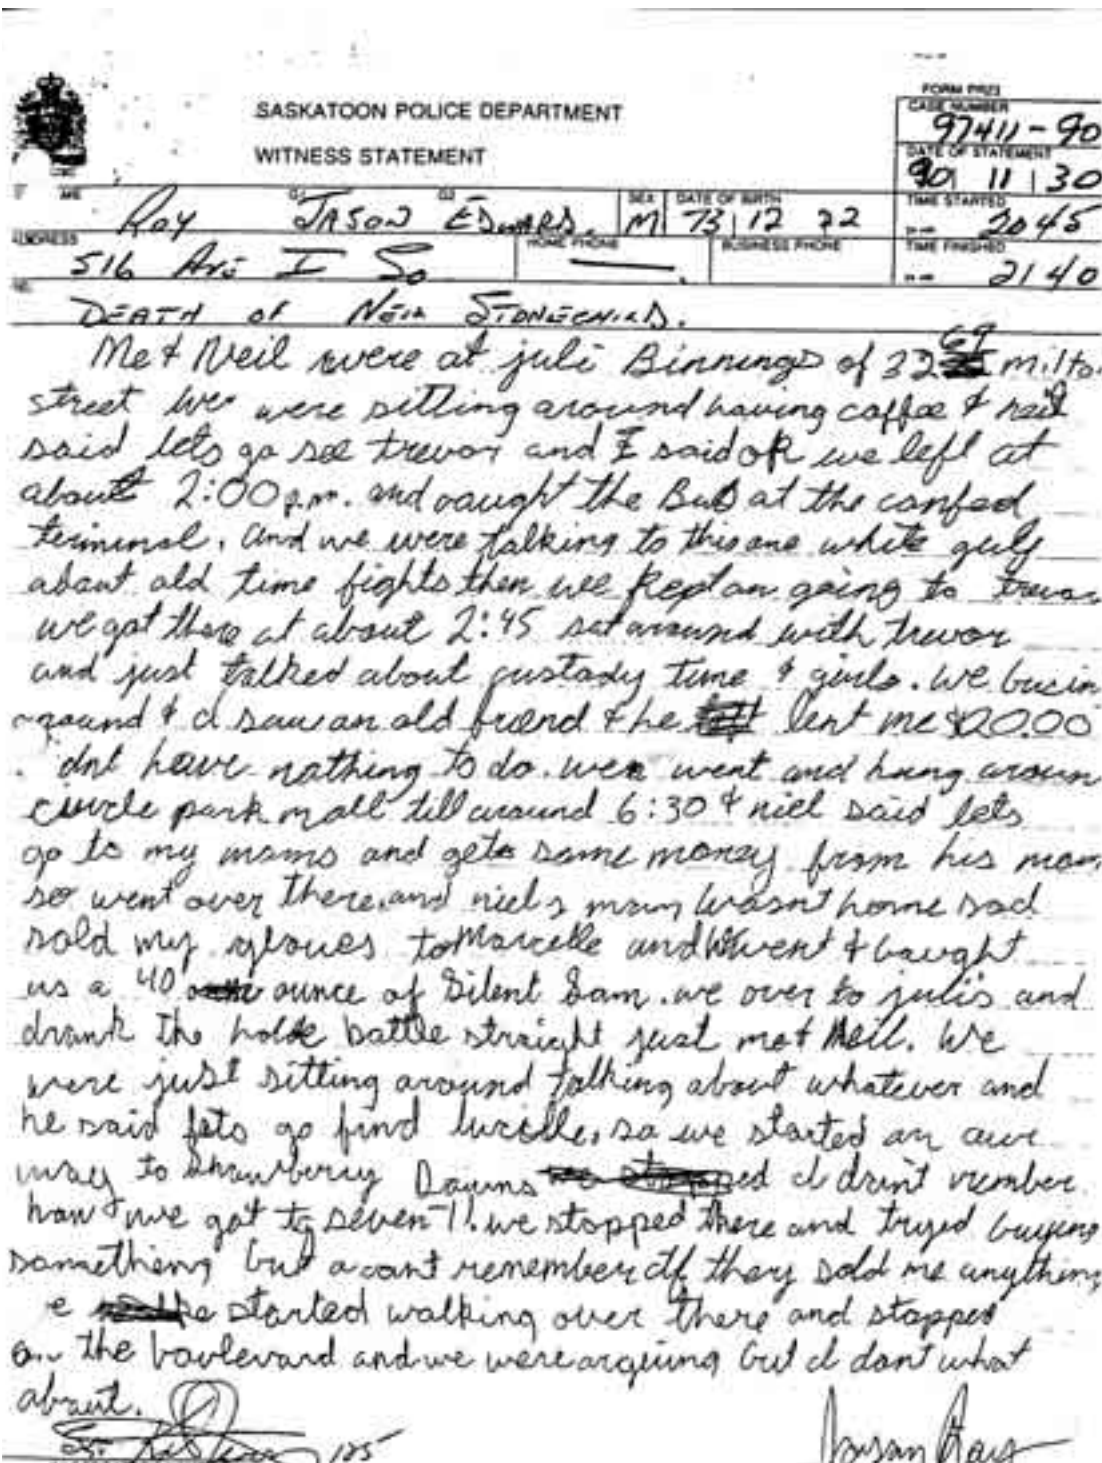 FORM PR23
SASKATOON POLICE DEPARTMENT
WITNESS STATEMENT
CASE NUMBER
97411-90
DATE OF STATEMENT
90 11 30
ME G1 G2 SEX DATE OF BIRTH TIME STARTED
Roy JASON EDWARD. M 73 12 22 2045
ADDRESS HOME PHONE BUSINESS PHONE TIME FINISHED
516 Ave I So 2140
DEATH OF Neil STONECHILD.
Me & Neil were at juli Binnings of 3269 milto
street we were sitting around having coffee & neil
said lets go see trevor and I said ok we left at
about 2:00 p.m. and caught the Bus at the confed
terminal. and we were talking to this one white guly
about old time fights then we kept on going to trevor
we got there at about 2:45 sat around with trevor
and just talked about custody time & girls. we
around & I saw an old friend & he lent me $20.00
. dnt have nothing to do. we went and hung aroun
circle park mall till around 6:30 & niel said lets
go to my moms and get some money from his mom
so went over there, and niels mom wasn't home
sold my gloves to Marcelle and went & baught
us a 40 ounce of Silent Sam. we over to julis and
drank the holde bottle straight just me & Neil. We
were just sitting around talking about whatever and
he said lets go find lucille, so we started on our
way to Snowberry Downs I dint rember
how we got to seven-11. we stopped there and tryed buying
something but cant remember if they sold me anything
e started walking over there and stopped
on the boulevard and we were argeuing but I dont what
about.
125
Jason Roy